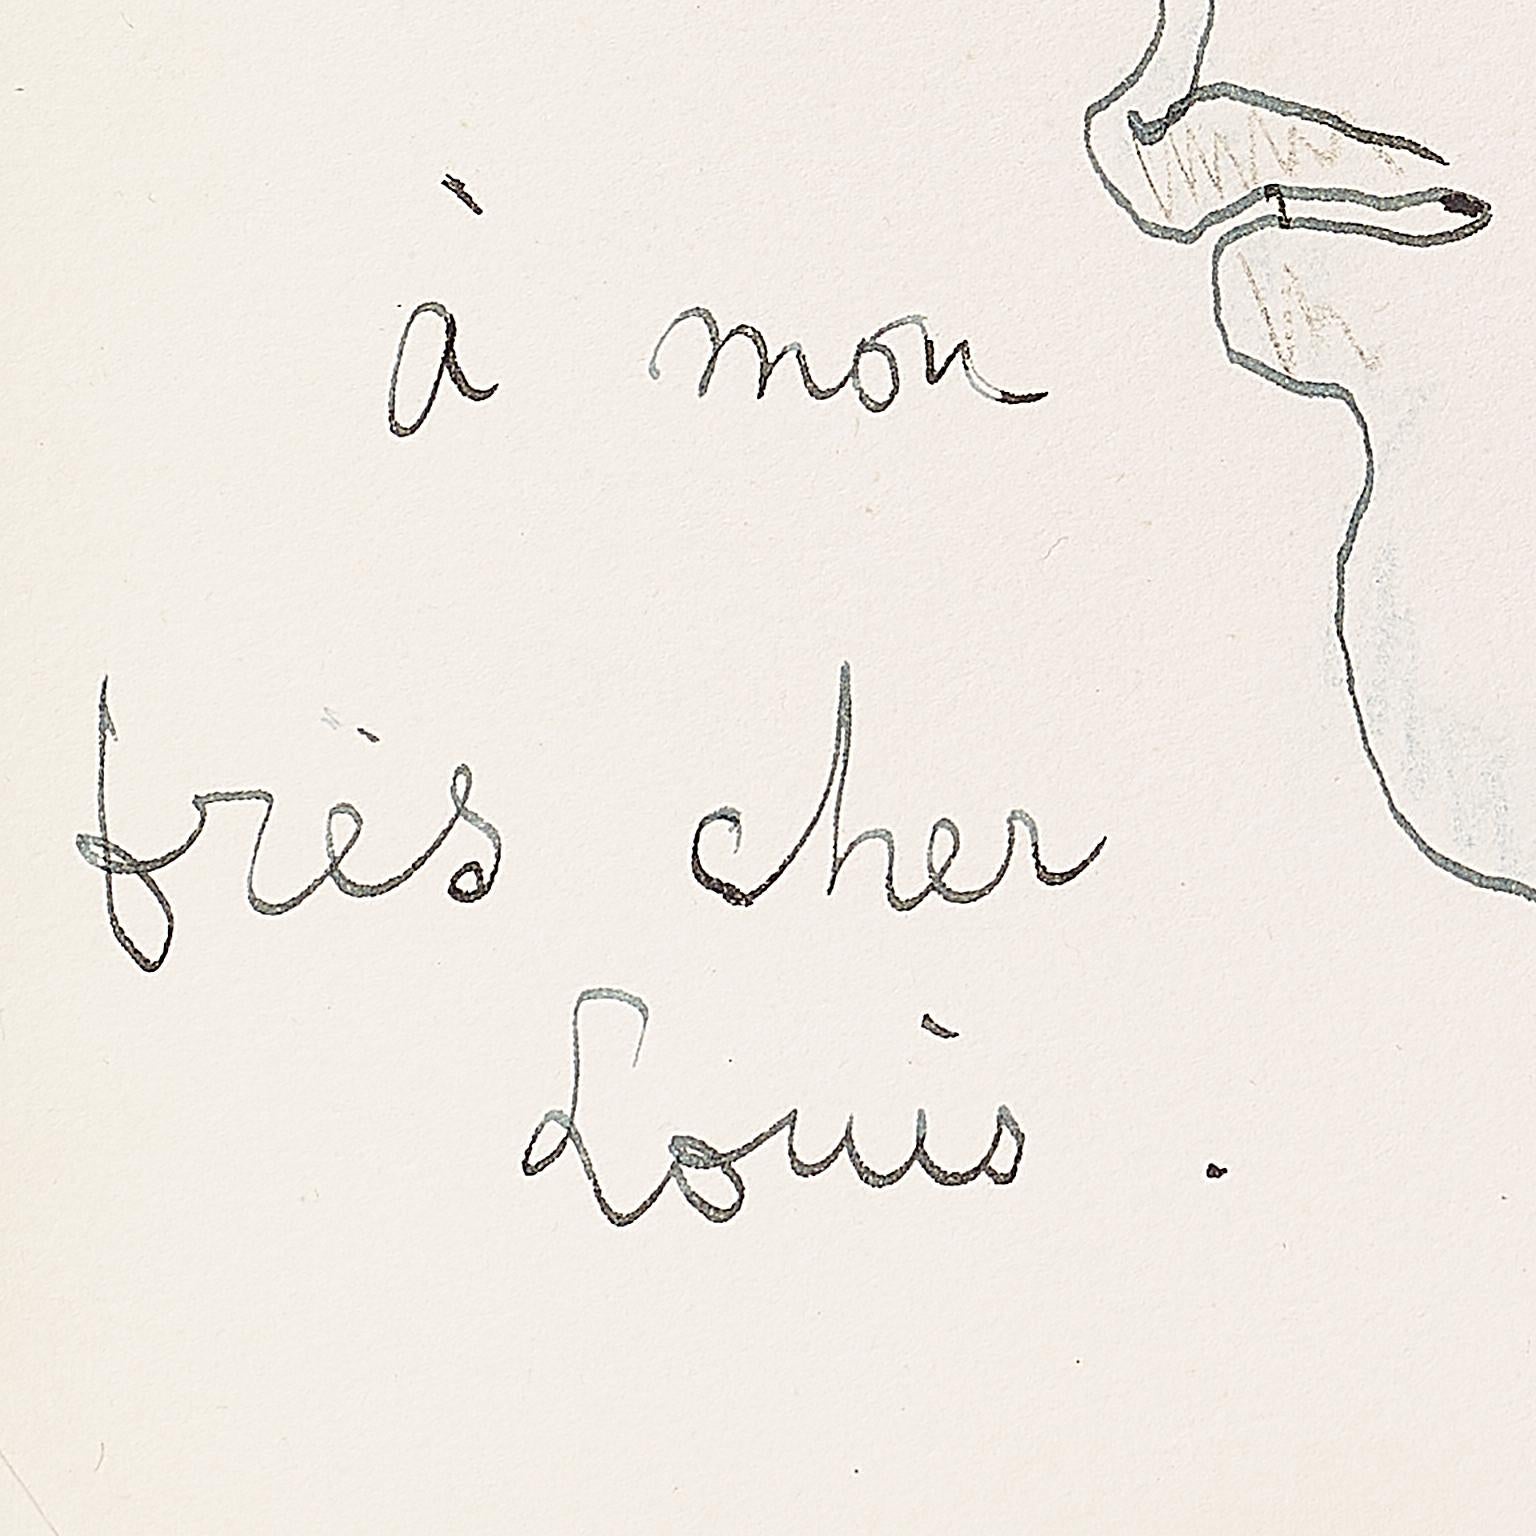 à mon
très cher
Louis.